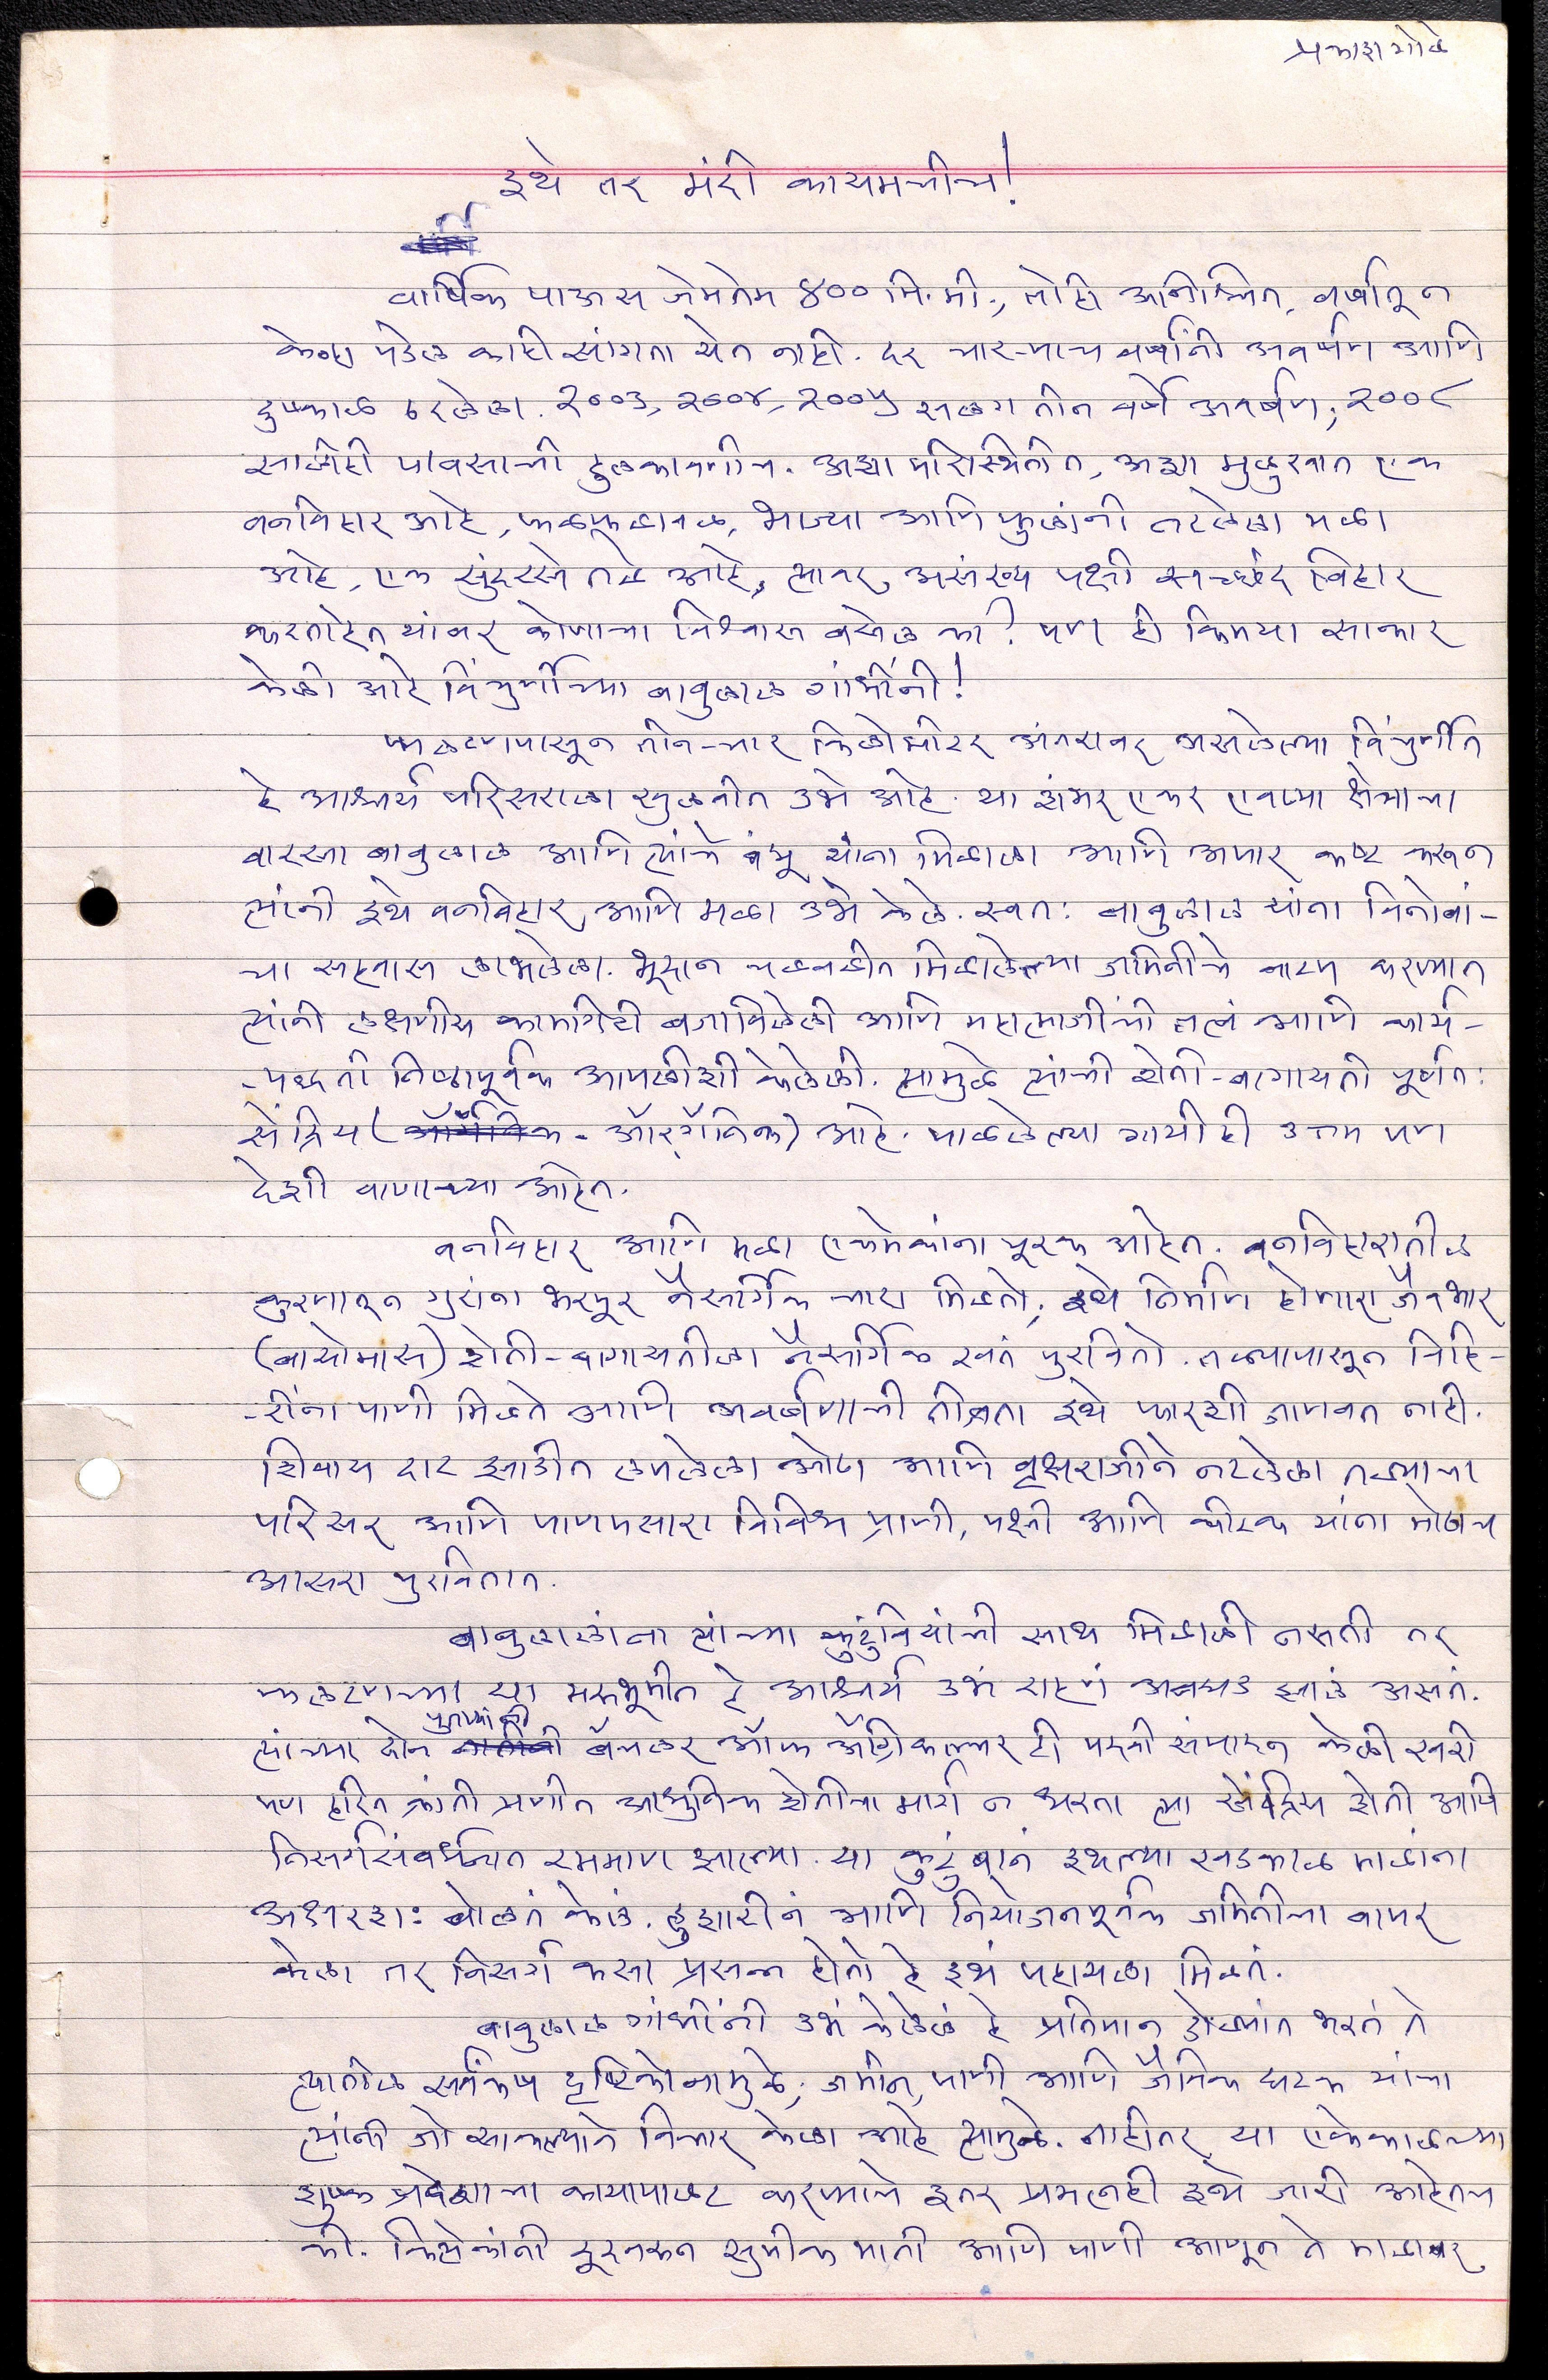 प्रकाश गोळे
इथे तर मंदी कायमचीच!
वार्षिक पाऊस जेमतेम ४०० मि.मी., तोही अनिश्चित, वर्षातून
केव्हा पडेल काही सांगता येत नाही. दर चार-पाच वर्षांनी अवर्षण आणि
दुष्काळ ठरलेला. २००३, २००४, २००५ सलग तीन वर्षे अवर्षण, २००८
सालीही पावसाची हुलकावणीच. अशा परिस्थितीत, अशा मुलुखात एक
वनविहार आहे, फळफळावळ, भाज्या आणि फुलांनी नटलेला मळा
आहे, एक सुंदरसे तळे आहे, त्यावर असंख्य पक्षी स्वच्छंद विहार
करताहेत यांवर कोणाचा विश्वास बसेल का? पण ही किमया साकार
केली आहे विंचुर्णीच्या बाबुलाल गांधींनी!
फलटणपासून तीन-चार किलोमीटर अंतरावर असलेल्या विंचुर्णीत
हे आश्चर्य परिसराला खुलवीत उभे आहे. या शंभर एकर एवढ्या क्षेत्राचा
वारसा बाबुलाल आणि त्यांचे बंधू यांना मिळाला आणि अपार कष्ट करून
त्यांनी इथे वनविहार आणि मळा उभे केले. स्वतः बाबुलाल यांना विनोबां-
चा सहवास लाभलेला. भूदान चळवळीत मिळालेल्या जमिनीचे वाटप करण्यात
त्यांनी लक्षणीय कामगिरी बजाविलेली आणि महात्माजींची तत्वं आणि कार्य-
-पध्दती निष्ठापूर्वक आपलीशी केलेली. त्यामुळे त्यांची शेती-बागायती पूर्णतः
सेंद्रिय (ऑरगॅनिक) आहे. पाळलेल्या गायीही उत्तम पण
देशी वाणाच्या आहेत.
वनविहार आणि मळा एकमेकांना पूरक आहेत. वनविहारातील
कुरणातून गुरांना भरपूर नैसर्गिक चारा मिळतो, इथे निर्माण होणारा जैवभार
(बायोमास) शेती-बागायतीला नैसर्गिक खतं पुरवितो. तळ्यापासून विहि-
-रींना पाणी मिळते आणि अवर्षणाची तीव्रता इथे फारशी जाणवत नाही.
शिवाय दाट झाडीत लपलेला ओढा आणि वृक्षराजीने नटलेला तळ्याचा
परिसर आणि पाणपसारा विविध प्राणी, पक्षी आणि कीटक यांना मोठाच
आसरा पुरवितात.
बाबुलालांना त्यांच्या कुटुंबियांची साथ मिळाली नसती तर
फलटणच्या या मरुभूमीत हे आश्चर्य उभं राहणं अवघड झालं असतं.
त्यांच्या दोन पुतण्यांनी बॅचलर ऑफ ॲग्रिकल्चर ही पदवी संपादन केली खरी
पण हरित क्रांती प्रणीत आधुनिक शेतीचा मार्ग न धरता त्या सेंद्रिय शेती आणि
निसर्गसंवर्धनात रममाण झाल्या. या कुटुंबानं इथल्या खडकाळ माळांना
अक्षरशः बोलतं केलं. हुशारीनं आणि नियोजनपूर्वक जमिनीचा वापर
केला तर निसर्ग कसा प्रसन्न होतो हे इथं पहायला मिळतं.
बाबुलाल गांधींनी उभं केलेलं हे प्रतिमान डोळ्यांत भरतं ते
त्यातील सर्वंकष दृष्टिकोनामुळे, जमीन, पाणी आणि जैविक घटक यांचा
त्यांनी जो साकल्याने विचार केला आहे त्यामुळे. नाहीतर या एकेकाळच्या
शुष्क प्रदेशाचा कायापालट करण्याचे इतर प्रयत्नही इथे जारी आहेतच
की. कित्येकांनी दूरवरून सुपीक माती आणि पाणी आणून ते माळावर